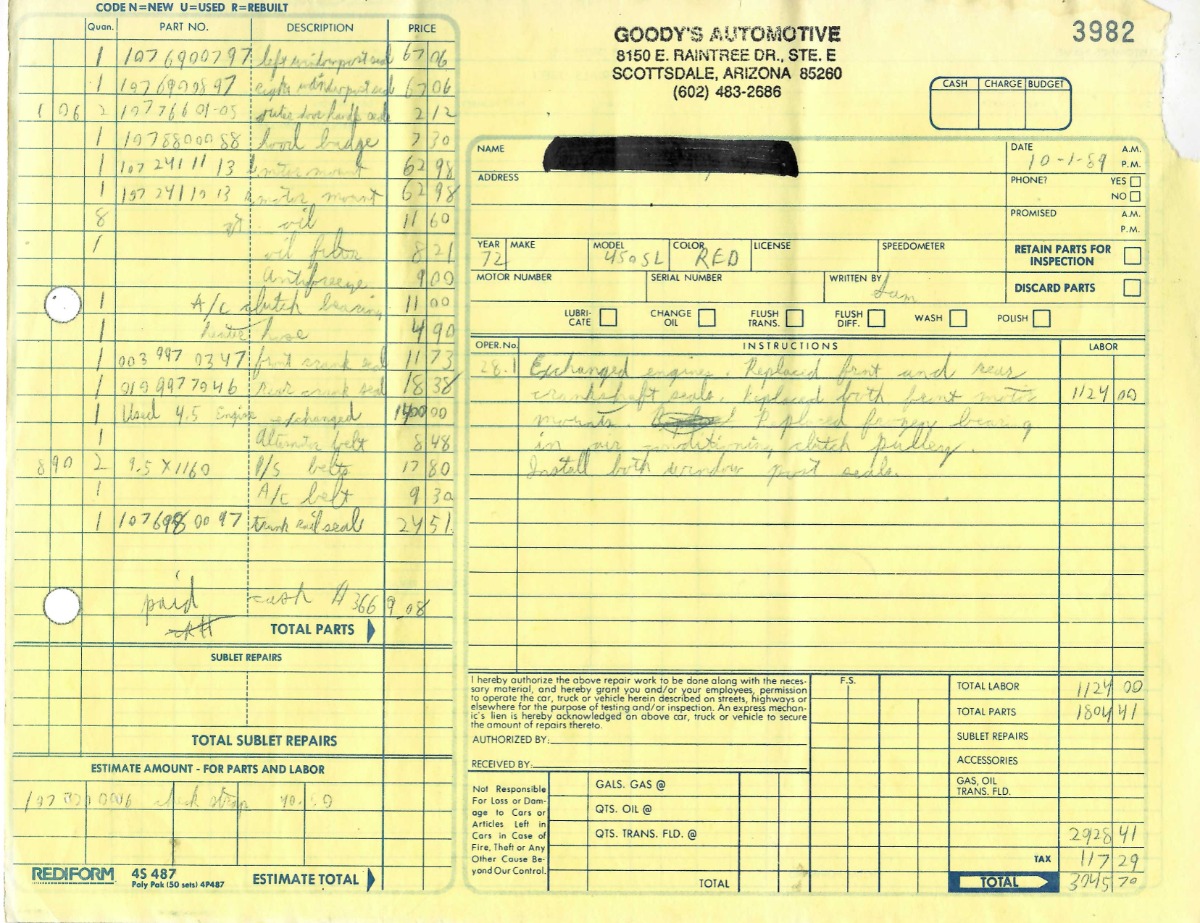 CODE N=NEW U=USED R=REBUILT
Quan. PART NO. DESCRIPTION PRICE
1 1076900797 left windowpost seal 67 06
1 1076900897 right windowpost seal 67 06
1 06 2 10776601-05 outer door handle seals 2 12
1 1078800088 hood badge 7 30
1 107 241 11 13 motor mount 62 98
1 107 241 13 motor mount 62 98
8 qt. oil 11 60
1 oil filter 8 21
Antifreeze 9 00
1 A/C clutch bearing 11 00
1 heater hose 4 90
1 003 997 0347 front crank seal 11 73
1 019 997 7046 rear crank seal 18 38
1 Used 4.5 Engine exchanged 1400 00
1 Alternator belt 8 48
8 90 2 9.5 X 1160 P/S belts 17 80
1 A/C belt 9 30
1 107698 00 97 trunk rail seal 24 51
paid cash # 366 9.08
TOTAL PARTS
SUBLET REPAIRS
TOTAL SUBLET REPAIRS
ESTIMATE AMOUNT - FOR PARTS AND LABOR
check strap
REDIFORM 4S 487
Poly Pak (50 sets) 4P487
ESTIMATE TOTAL
GOODY'S AUTOMOTIVE
8150 E. RAINTREE DR., STE. E
SCOTTSDALE, ARIZONA 85260
(602) 483-2686
3982
CASH CHARGE BUDGET
NAME
DATE 10-1-89 A.M. P.M.
ADDRESS
PHONE? YES NO
PROMISED A.M. P.M.
YEAR 72 MAKE MODEL 450SL COLOR RED LICENSE SPEEDOMETER
RETAIN PARTS FOR INSPECTION
MOTOR NUMBER SERIAL NUMBER WRITTEN BY Sam
DISCARD PARTS
LUBRI-CATE CHANGE OIL FLUSH TRANS. FLUSH DIFF. WASH POLISH
OPER. No. INSTRUCTIONS LABOR
28.1 Exchanged engine. Replaced front and rear
crankshaft seals. Replaced both front motor 1124 00
mounts. Replaced bearing
in air conditioning clutch pulley.
Install both window post seals.
I hereby authorize the above repair work to be done along with the neces-
sary material, and hereby grant you and/or your employees, permission
to operate the car, truck or vehicle herein described on streets, highways or
elsewhere for the purpose of testing and/or inspection. An express mechan-
ic's lien is hereby acknowledged on above car, truck or vehicle to secure
the amount of repairs thereto.
AUTHORIZED BY:
RECEIVED BY:
Not Responsible
For Loss or Dam-
age to Cars or
Articles Left in
Cars in Case of
Fire, Theft or Any
Other Cause Be-
yond Our Control.
GALS. GAS @
QTS. OIL @
QTS. TRANS. FLD. @
TOTAL
F.S.
TOTAL LABOR 1124 00
TOTAL PARTS 1804 41
SUBLET REPAIRS
ACCESSORIES
GAS, OIL
TRANS. FLD.
2928 41
TAX 117 29
TOTAL 3045 70